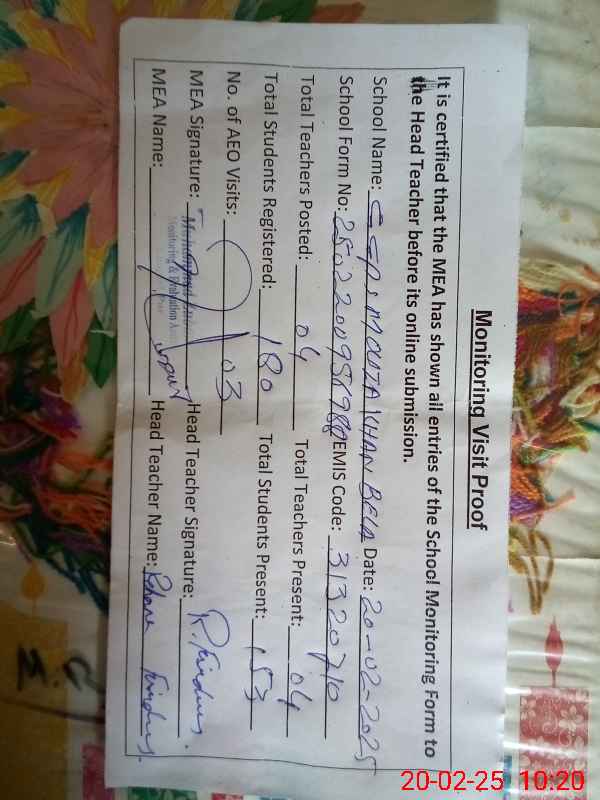 Monitoring Visit Proof
It is certified that the MEA has shown all entries of the School Monitoring Form to
the Head Teacher before its online submission.
School Name: GGPS MOUZA KHAN BELA Date: 20-02-2025
School Form No: EMIS Code: 31320710
Total Teachers Posted: 04 Total Teachers Present: 04
Total Students Registered: 180 Total Students Present: 153
No. of AEO Visits: 03
MEA Signature: Head Teacher Signature: R. Firdus.
Monitoring & Evaluation
MEA Name: Head Teacher Name: Firdus.
20-02-25 10:20